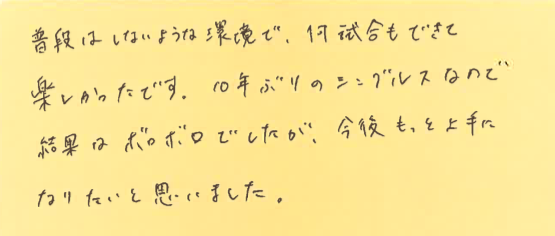 普段はしないような環境で、何試合もできて
楽しかったです。10年ぶりのシングルスなので
結果はボロボロでしたが、今後もっと上手に
なりたいと思いました。